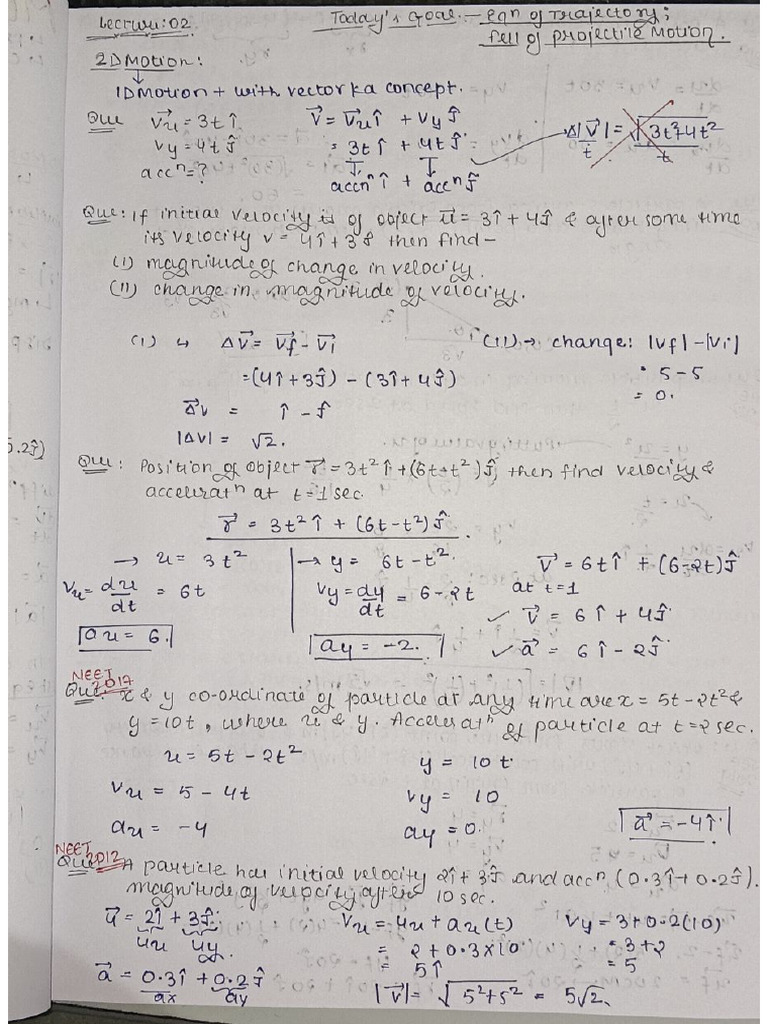 Lecture: 02.
Today's Goal :- Eqn of Trajectory;
full of projectile Motion.
2D Motion:
↓
1D Motion + with vector ka concept.
Que Vx→ = 3t î
V→ = Vx→ î + Vy ĵ
Δ|V→|/t = √3t²+4t²/t
Vy = 4t ĵ
= 3t î + 4t ĵ
accn = ?
accn î + accn ĵ
Que: If initial velocity is of object u→ = 3î + 4ĵ & after some time
its velocity v = 4î + 3ĵ then find -
(i) magnitude of change in velocity.
(ii) change in magnitude of velocity.
(i) ↳ ΔV→ = Vf→ - Vi→
(ii) → change: |Vf| - |Vi|
= (4î + 3ĵ) - (3î + 4ĵ)
= 5 - 5
Δ→v = î - ĵ
= 0.
|ΔV| = √2.
5.2ĵ)
Que: Position of object r→ = 3t² î + (6t - t²) ĵ, then find velocity &
acceleratn at t = 1 sec.
r→ = 3t² î + (6t - t²) ĵ
→ x = 3t²
→ y = 6t - t².
V→ = 6t î + (6 - 2t) ĵ
Vx = dx/dt = 6t
Vy = dy/dt = 6 - 2t
at t = 1
✓ V→ = 6 î + 4ĵ
ax = 6.
ay = -2.
✓ a→ = 6 î - 2ĵ
NEET 2017
Que: x & y co-ordinate of particle at any time are x = 5t - 2t² &
y = 10t, where x & y. Acceleratn of particle at t = 2 sec.
x = 5t - 2t²
y = 10 t.
Vx = 5 - 4t
Vy = 10
ax = -4
ay = 0.
a→ = -4 î
NEET 2012
Que: A particle has initial velocity 2î + 3ĵ and accn (0.3î + 0.2ĵ).
magnitude of velocity after 10 sec.
u→ = 2î + 3ĵ
Vx = ux + ax(t)
Vy = 3 + 0.2(10)
ux uy.
= 2 + 0.3×10
= 3 + 2
= 5î
= 5
a→ = 0.3î + 0.2ĵ
ax ay
|V→| = √5² + 5² = 5√2.